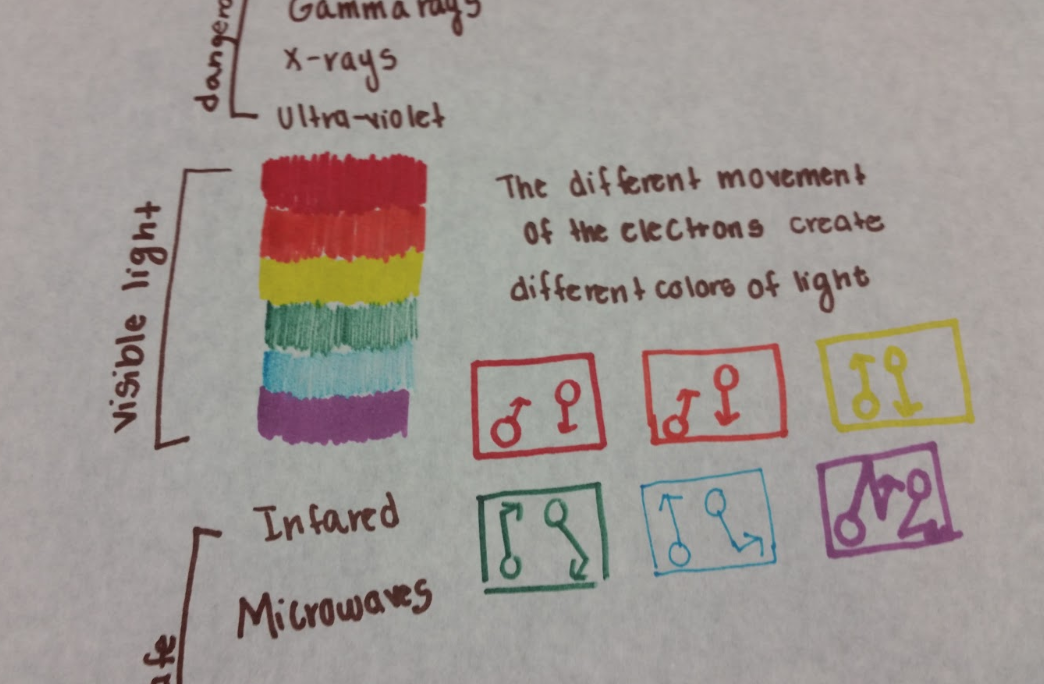 Gamma rays
X-rays
Ultra-violet
visible light
The different movement
of the electrons create
different colors of light
Infared
Microwaves